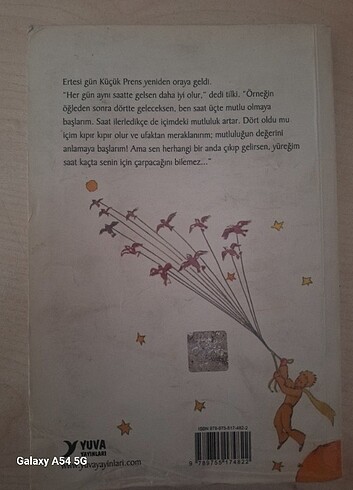 Ertesi gün Küçük Prens yeniden oraya geldi.
"Her gün aynı saatte gelsen daha iyi olur," dedi tilki. "Örneğin
öğleden sonra dörtte geleceksen, ben saat üçte mutlu olmaya
başlarım. Saat ilerledikçe de içimdeki mutluluk artar. Dört oldu mu
içim kıpır kıpır olur ve ufaktan meraklanırım; mutluluğun değerini
anlamaya başlarım! Ama sen herhangi bir anda çıkıp gelirsen, yüreğim
saat kaçta senin için çarpacağını bilemez..."
YUVA
YAYINLARI
www.yuvayayinlari.com
Galaxy A54 5G